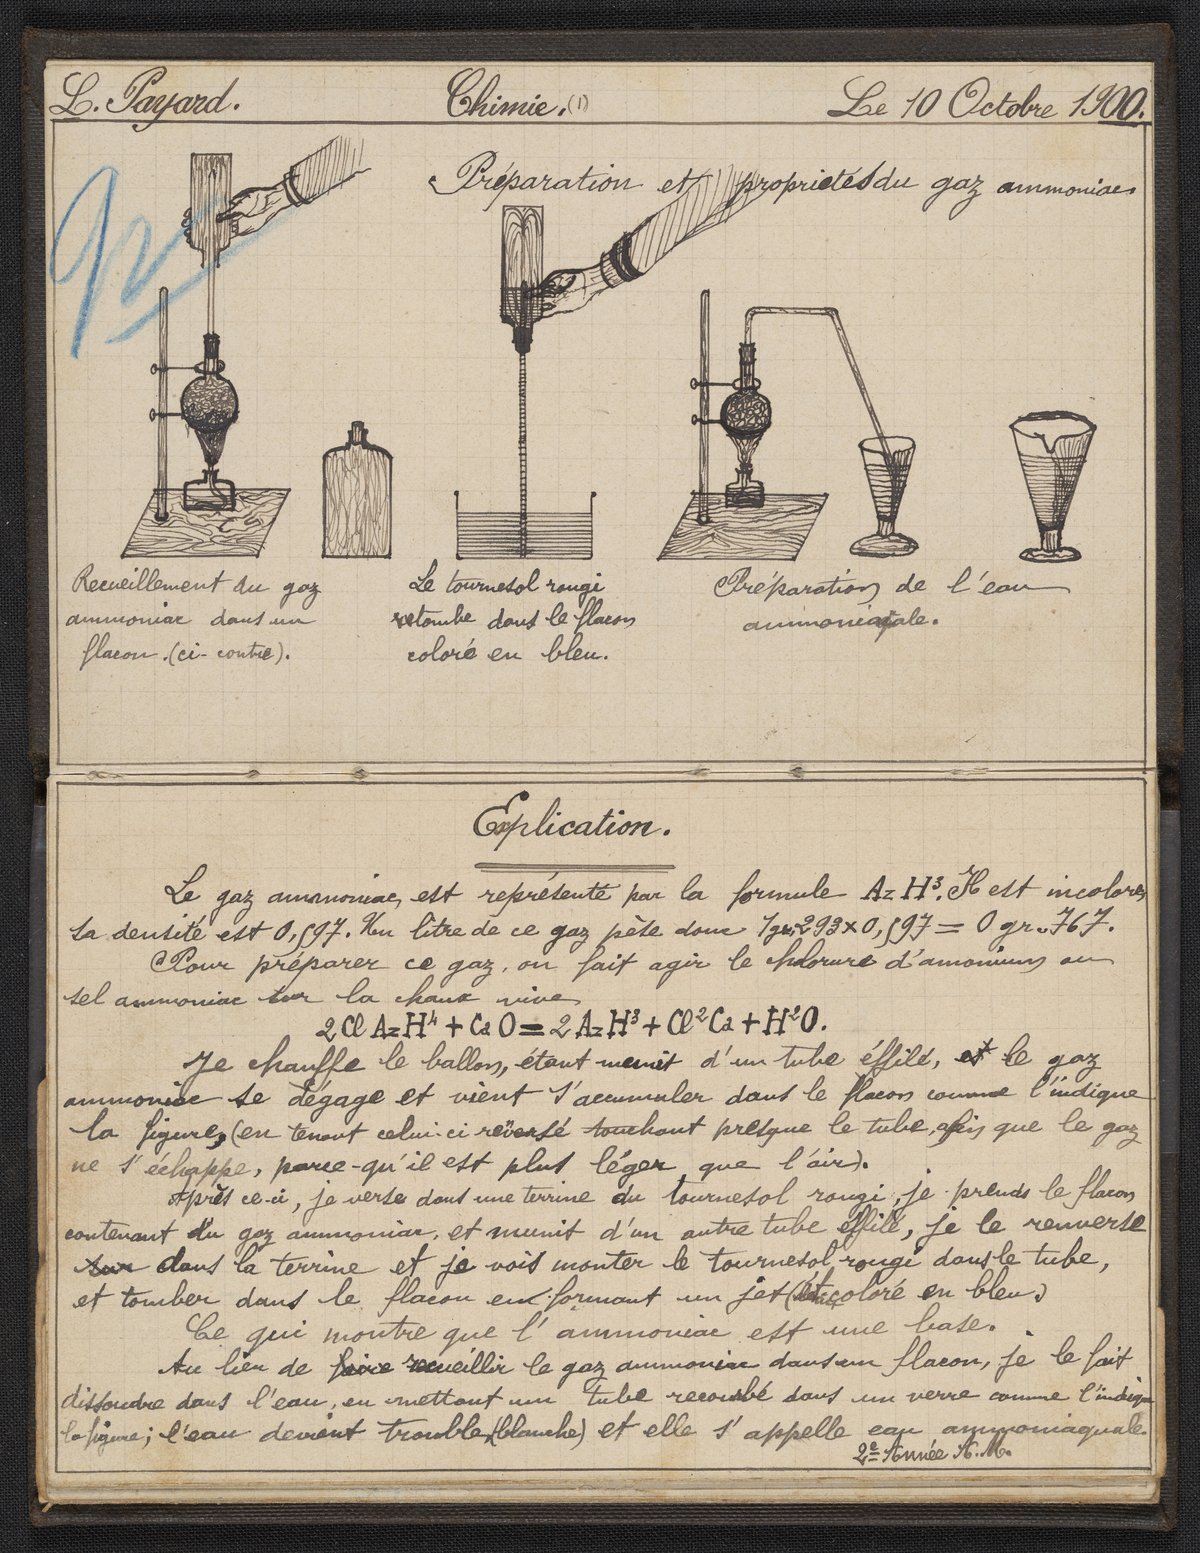 L. Payard.
Chimie. (1)
Le 10 Octobre 1900.
Préparation et propriétés du gaz ammoniac
Recueillement du gaz
ammoniac dans un
flacon. (ci-contre).
Le tournesol rougi
retombe dans le flacon
coloré en bleu.
Préparation de l'eau
ammoniacale.
Explication.
Le gaz ammoniac, est représenté par la formule AzH³. Il est incolore,
sa densité est 0,597. Un litre de ce gaz pèse donc 1gr,293 x 0,597 = 0 gr.767.
Pour préparer ce gaz, on fait agir le chlorure d'amonium ou
sel ammoniac sur la chaux vive
2 Cl AzH⁴ + Ca O = 2 AzH³ + Cl²Ca + H²O.
Je chauffe le ballon, étant munit d'un tube éffilé, et le gaz
ammoniac se dégage et vient s'accumuler dans le flacon comme l'indique
la figure, (en tenant celui-ci réversé touchant presque le tube, afin que le gaz
ne s'échappe, parce-qu'il est plus léger que l'air).
Après ce-ci, je verse dans une terrine du tournesol rougi, je prends le flacon
contenant du gaz ammoniac, et munit d'un autre tube éffilé, je le renverse
sur dans la terrine et je vois monter le tournesol rougi dans le tube,
et tomber dans le flacon en formant un jet (coloré en bleu.)
Ce qui montre que l'ammoniac est une base.
Au lieu de faire recueillir le gaz ammoniac dans un flacon, je le fait
dissoudre dans l'eau, en mettant un tube recourbé dans un verre comme l'indique
la figure; l'eau devient trouble, (blanche) et elle s'appelle eau ammoniaquale.
2e Année A. M.